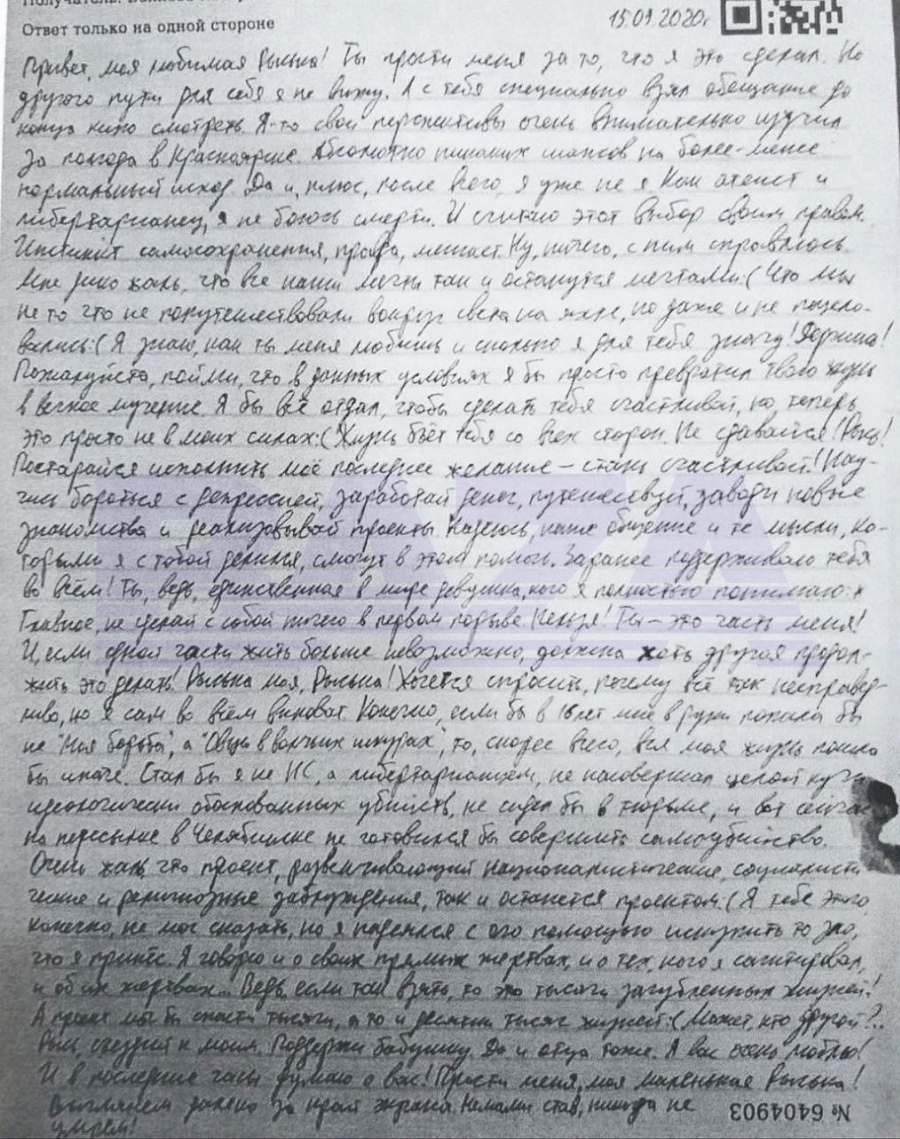 Ответ только на одной стороне
15.01.2020г
Привет, моя любимая Рыська! Ты прости меня за то, что я это сделал. Но
другого пути для себя я не вижу. А с тебя специально взял обещание до
конца кино смотреть. Я-то свои перспективы очень внимательно изучил
за полгода в Красноярске. Абсолютно никаких шансов на более-менее
нормальный исход. Да и, плюс, после всего, я уже не я. Как атеист и
либертарианец, я не боюсь смерти. И считаю этот выбор своим правом.
Инстинкт самосохранения, правда, мешает. Ну, ничего, с ним справлюсь.
Мне жаль, что все наши мечты так и останутся мечтами:( Что мы
не то что не попутешествовали вокруг света на яхте, но даже и не поцело-
вались:( Я знаю, как ты меня любишь и сколько я для тебя значу!
Пожалуйста, пойми, что в данных условиях я бы просто превратил твою жизнь
в вечное мучение. Я бы всё отдал, чтобы сделать тебя счастливой, но, теперь
это просто не в моих силах:( Жизнь бьёт тебя со всех сторон. Не сдавайся! Рысь!
Постарайся исполнить моё последнее желание – стань счастливой! Нау-
чись бороться с депрессией, заработай денег, путешествуй, заводи новые
знакомства и реализовывай проекты. Надеюсь, наше общение и те мысли, ко-
торыми я с тобой делился, смогут в этом помочь. Заранее поддерживаю тебя
во всём! Ты, ведь, единственная в мире девушка, кого я полностью понимаю:*
Главное, не сделай с собой ничего в первом порыве. Нельзя! Ты – это часть меня!
И, если одной части жить больше невозможно, должна хоть другая продол-
жить это делать! Рыська моя, Рыська! Хочется спросить, почему всё так несправед-
ливо, но я сам во всём виноват. Конечно, если бы в 16 лет мне в руки попала бы
не "Моя борьба", а "Овцы в волчьих шкурах", то, скорее всего, вся моя жизнь пошла
бы иначе. Стал бы я не НС, а либертарианцем, не насовершал целой кучи
идеологически обоснованных убийств, не сидел бы в тюрьме, и вот сейчас
на пересылке в Челябинске не готовился бы совершить самоубийство.
Очень жаль, что проект, развенчивающий националистические, социалисти-
ческие и религиозные заблуждения, так и останется проектом:( Я тебе этого,
конечно, не мог сказать, но я надеялся с его помощью искупить то зло,
что я принёс. Я говорю и о своих прямых жертвах, и о тех, кого я сагитировал,
и об их жертвах... Ведь, если так взять, то это тысячи загубленных жизней!
А проект мог бы спасти тысячи, а то и десятки тысяч жизней:( Может, кто другой?..
Рысь, съезди к моим. Поддержи бабушку. Да и отца тоже. Я вас очень люблю!
И в последние часы думаю о вас! Прости меня, моя маленькая Рыська!
Выглянем далеко за край экрана. Нами став, никогда не
умрём!
№ 6404903